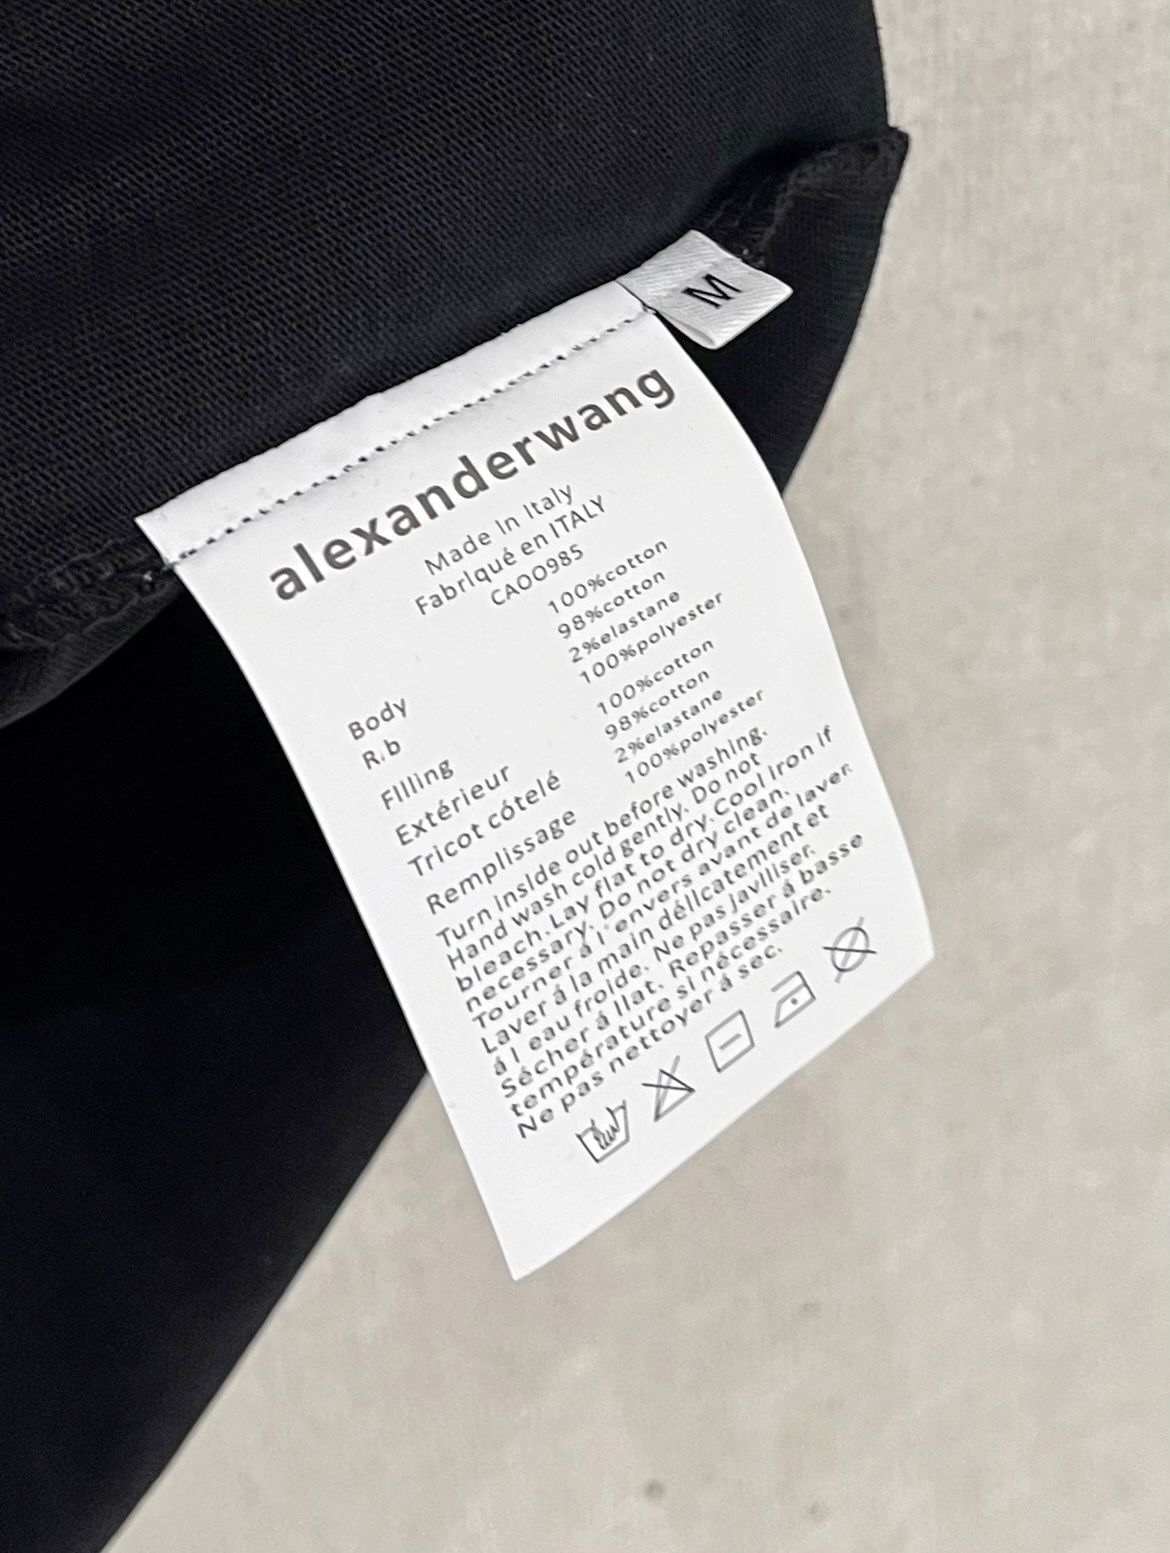 M
alexanderwang
Made In Italy
Fabrlqué en ITALY
CAOO985
100%cotton
98%cotton
2%elastane
100%polyester
100%cotton
98%cotton
2%elastane
100%polyester
Body
R.b
FIlling
Extérieur
Tricot cótelé
Remplissage
Turn inslde out before washing.
Hand wash cold gently. Do not
bleach. Lay flat to dry. Cool iron if
necessary. Do not dry clean.
Tourner á l'envers avant de laver.
Laver á la main délicatement et
á l eau froide. Ne pas javlliser.
Sécher á llat. Repasser á basse
température si nécessalre.
Ne pas nettoyer á sec.